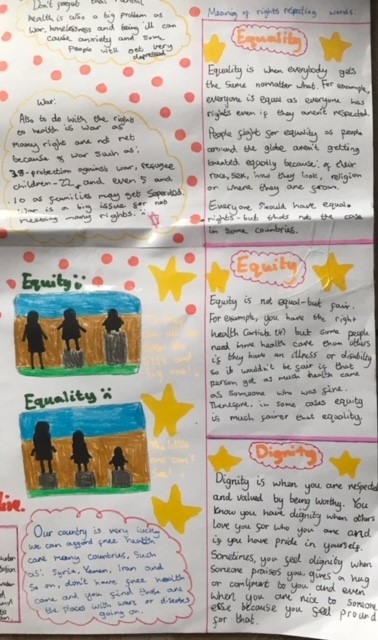 Don't forget that mental
health is also a big problem as
war, homelessness and being ill can
cause anxiety and some
People will get very
depressed
War:
Also to do with the rights
to health is war as
many right are not met
because of war such as:
38-protection against war, refugee
children-22, and even 9 and
10 as families may get seperated.
War is a big issue for not
meeting many rights.
Equity
Equality
Our country is very lucky
we can afford free health
care many countries, such
as: Syria, Yemen, Iran and
so on, don't have free health
care and you find these are
the places with wars or diseases
going on.
Meaning of rights respecting words.
Equality
Equality is when everybody gets
the same nomatter what. For example,
everyone is equal as everyone has
rights even if they aren't respected.
People fight for equality as people
around the globe aren't getting
treated equally because of their
race, sex, how they look, religion
or where they are from.
Everyone should have equal
rights-but thats not the case
in some countries.
Equity
Equity is not equal-but fair.
For example, you have the right
health (article 24) but some people
need more health care than others
if they have an illness or disability
so it wouldn't be fair if that
person got as much health care
as someone who was fine.
Therefore, in some cases equity
is much fairer that equality.
Dignity
Dignity is when you are respected
and valued by being worthy. You
know you have dignity when others
love you for who you are and
if you have pride in yourself.
Sometimes, you feel dignity when
someone praises you, gives a hug
or compliment to you and even
when you are nice to someone
else because you feel proud
for that.